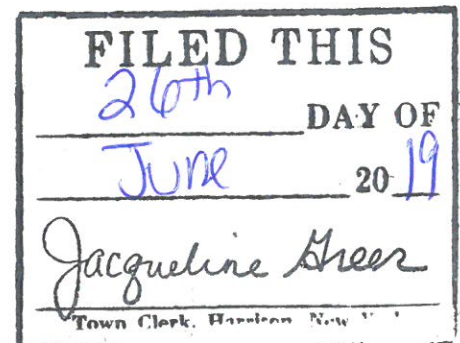 FILED THIS
26th
DAY OF
June 2019
Jacqueline Greer
Town Clerk, Harrison, New